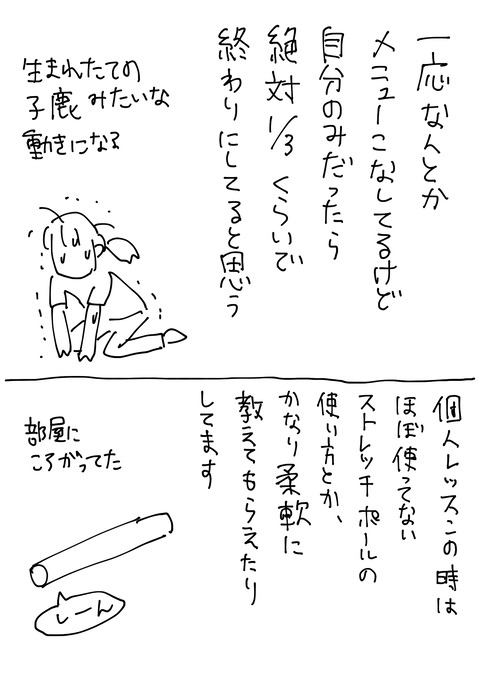 一応なんとか
メニューこなしてるけど
自分のみだったら
絶対1/3くらいで
終わりにしてると思う
生まれたての
子鹿みたいな
動きになる
個人レッスンの時は
ほぼ使ってない
ストレッチポールの
使い方とか、
かなり柔軟に
教えてもらえたり
してます
部屋に
ころがってた
しーん